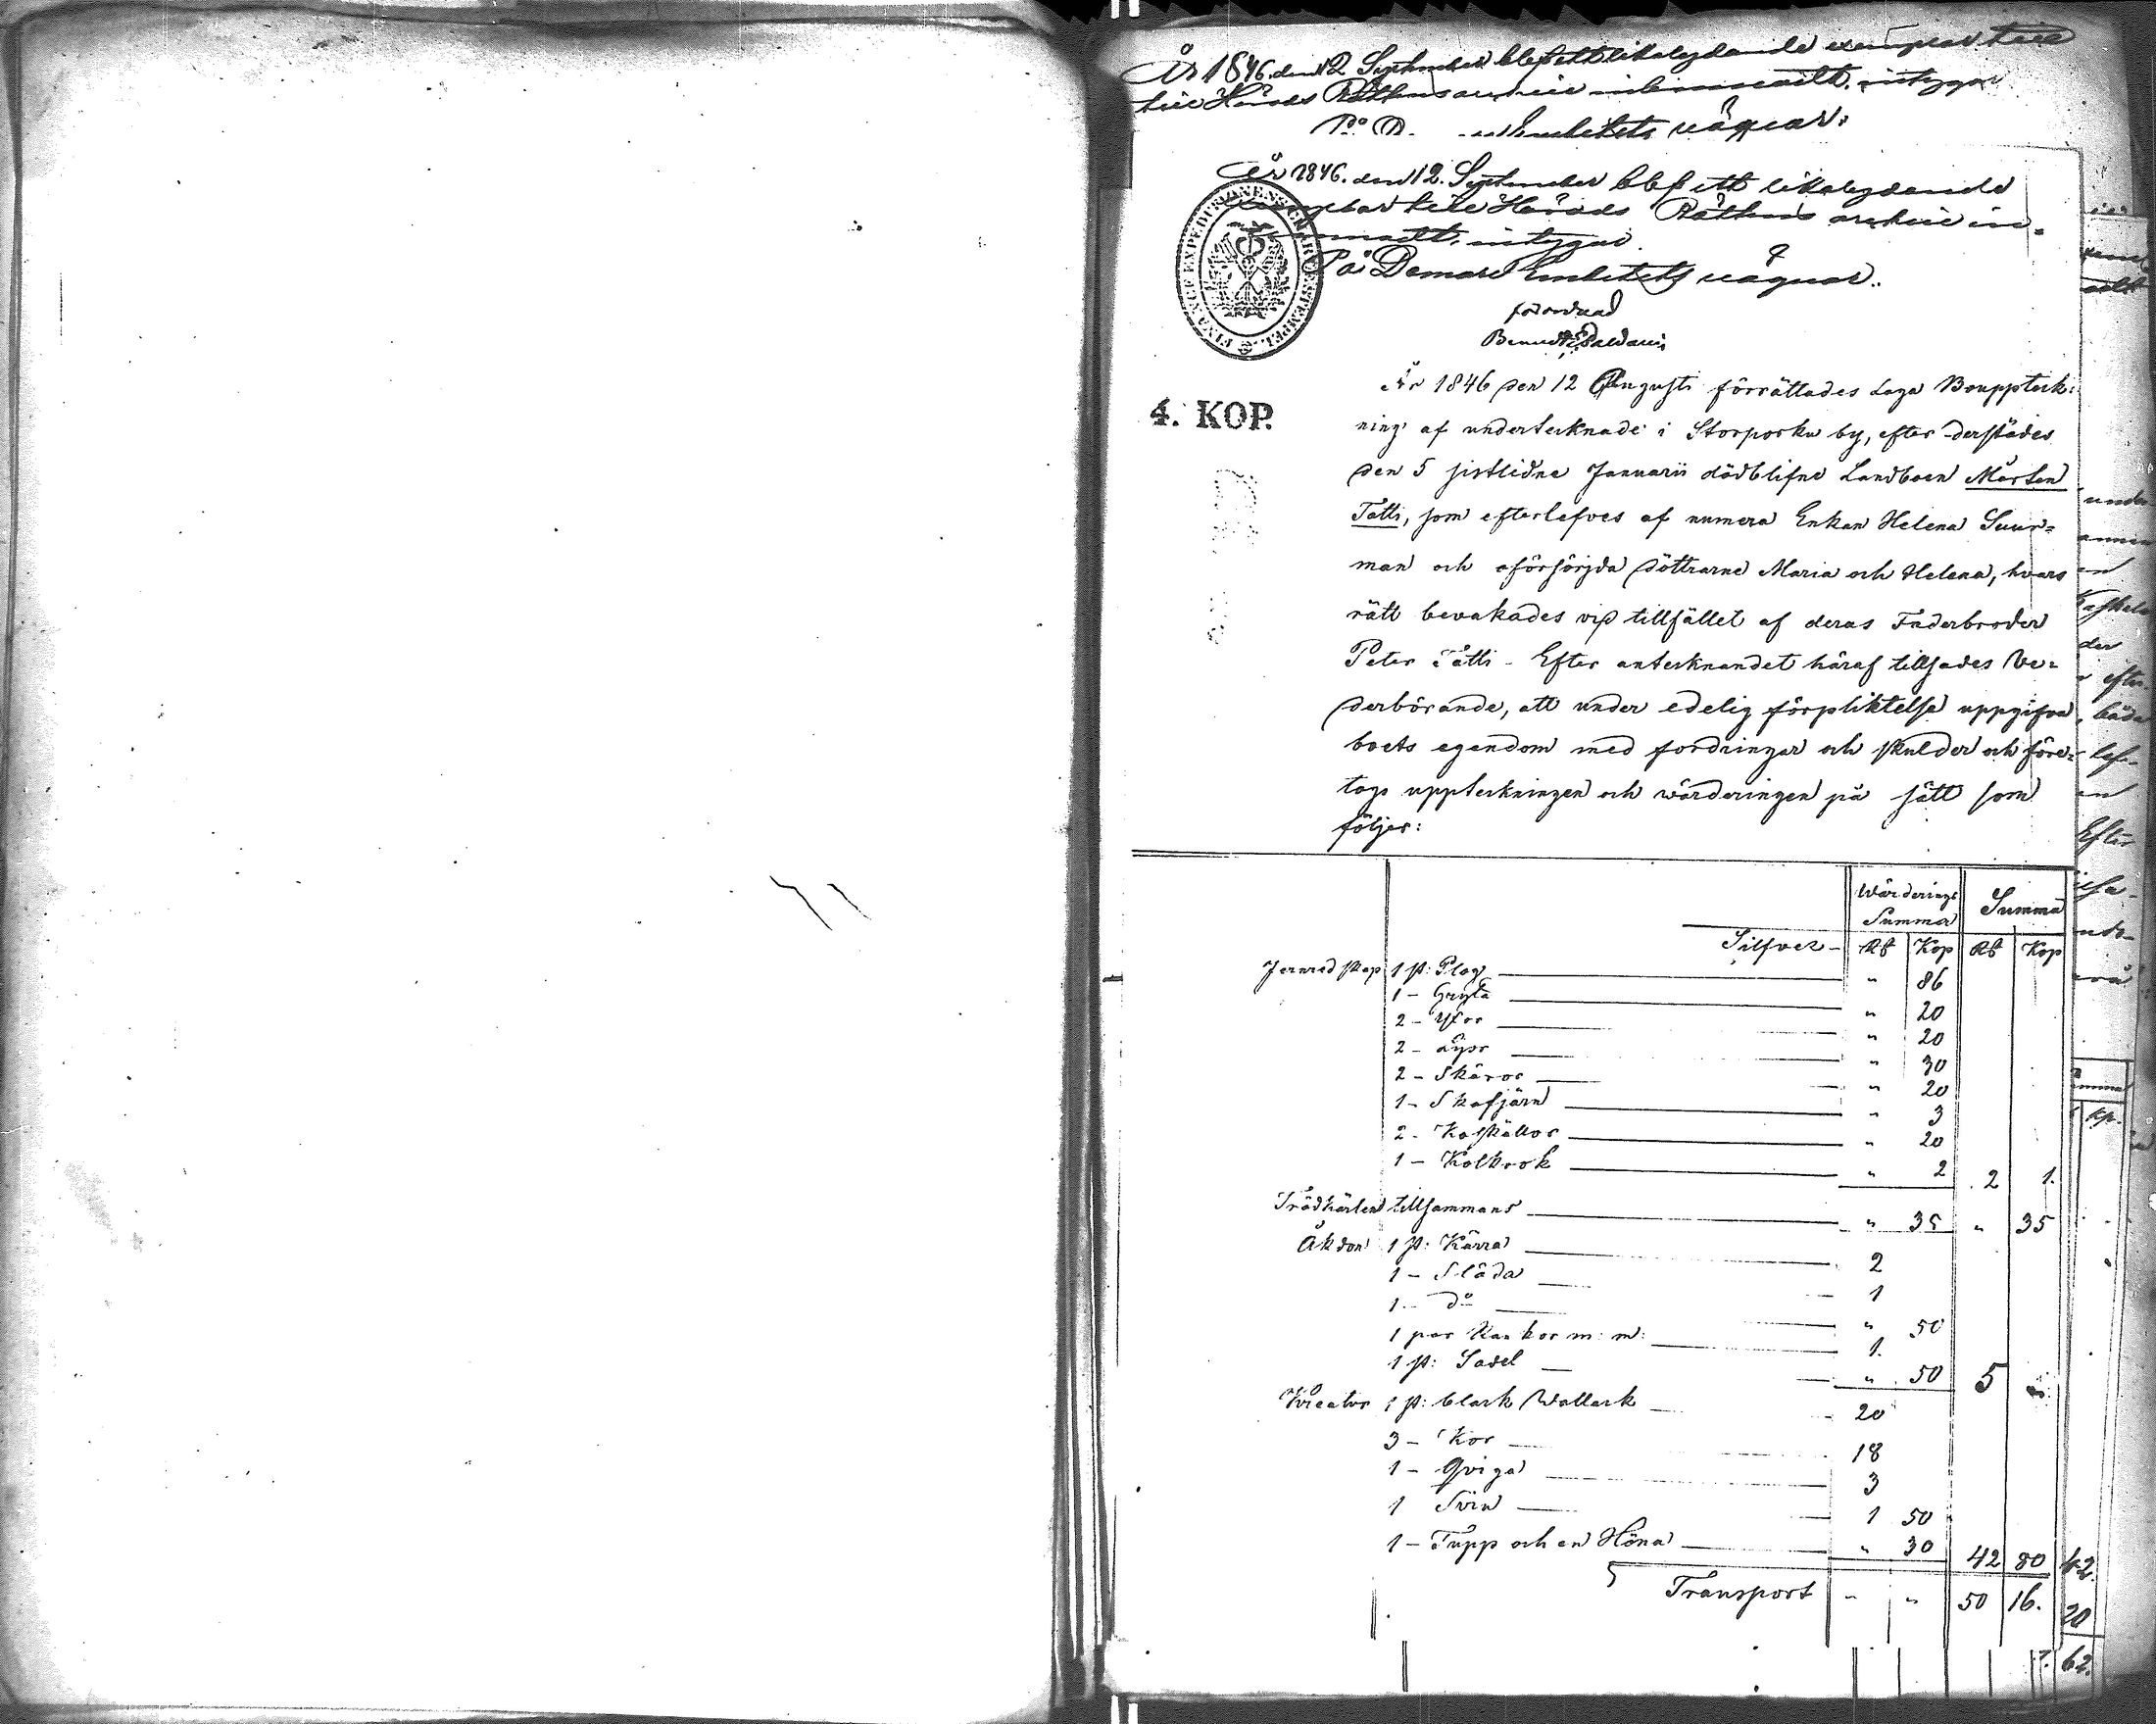 År 1846. den 12 September blef ett likalydande exemplar
till Härads Rättens archiv inlemnadt, intygar
På D. Embetets vägnar:
År 1846. den 12. September blef ett likalydande
exemplar till Härads Rättens archiv in-
lemnadt, intygar
På Domare Embetets vägnar.
förordnad
FINANCE EXPEDITIONENS CHARTÆ STEMPEL
4. KOP.
År 1846 den 12 Augusti förrättades Laga Bouppteck:
ning af undertecknade i Storporku by, efter derstädes
den 5 sistlidne Januarii dödblifne Landboen Mårten
Tätti, som efterlefves af numera Enkan Helena Suur=
man och oförsörjda döttrarne Maria och Helena, hvars
rätt bevakades vid tillfället af deras Faderbroder
Peter Tätti - Efter antecknandet häraf tillsades Ve=
derbörande, att under edelig förpliktelse uppgifva
boets egendom med fordringar och skulder och före=
togs uppteckningen och wärderingen på sätt som
följer:
Wärderings Summa
Summor
Silfver - Rb Kop Rb Kop
Jernredskap 1 st: Plog " 86
1 - Gryta " 20
2 - Yxor " 20
2 - Lijor " 30
2 - Skäror " 20
1 - Skafjärn " 3
2 - Koskällor " 20
1 - Kolkrok " 2 2 1.
Trädkärlen tillsammans " 35 " 35
Åkdon 1 st: Kärra 2
1 - Släda 1
1 - do " 50
1 par Rankor m: m: 1.
1 st: Sadel " 50 5 "
Kreatur 1 st: black Wallack 20
3 - Kor 18
1 - Qviga 3
1 Svin 1 50
1 - Tupp och en Höna " 30 42 80
Transport " " 50 16.